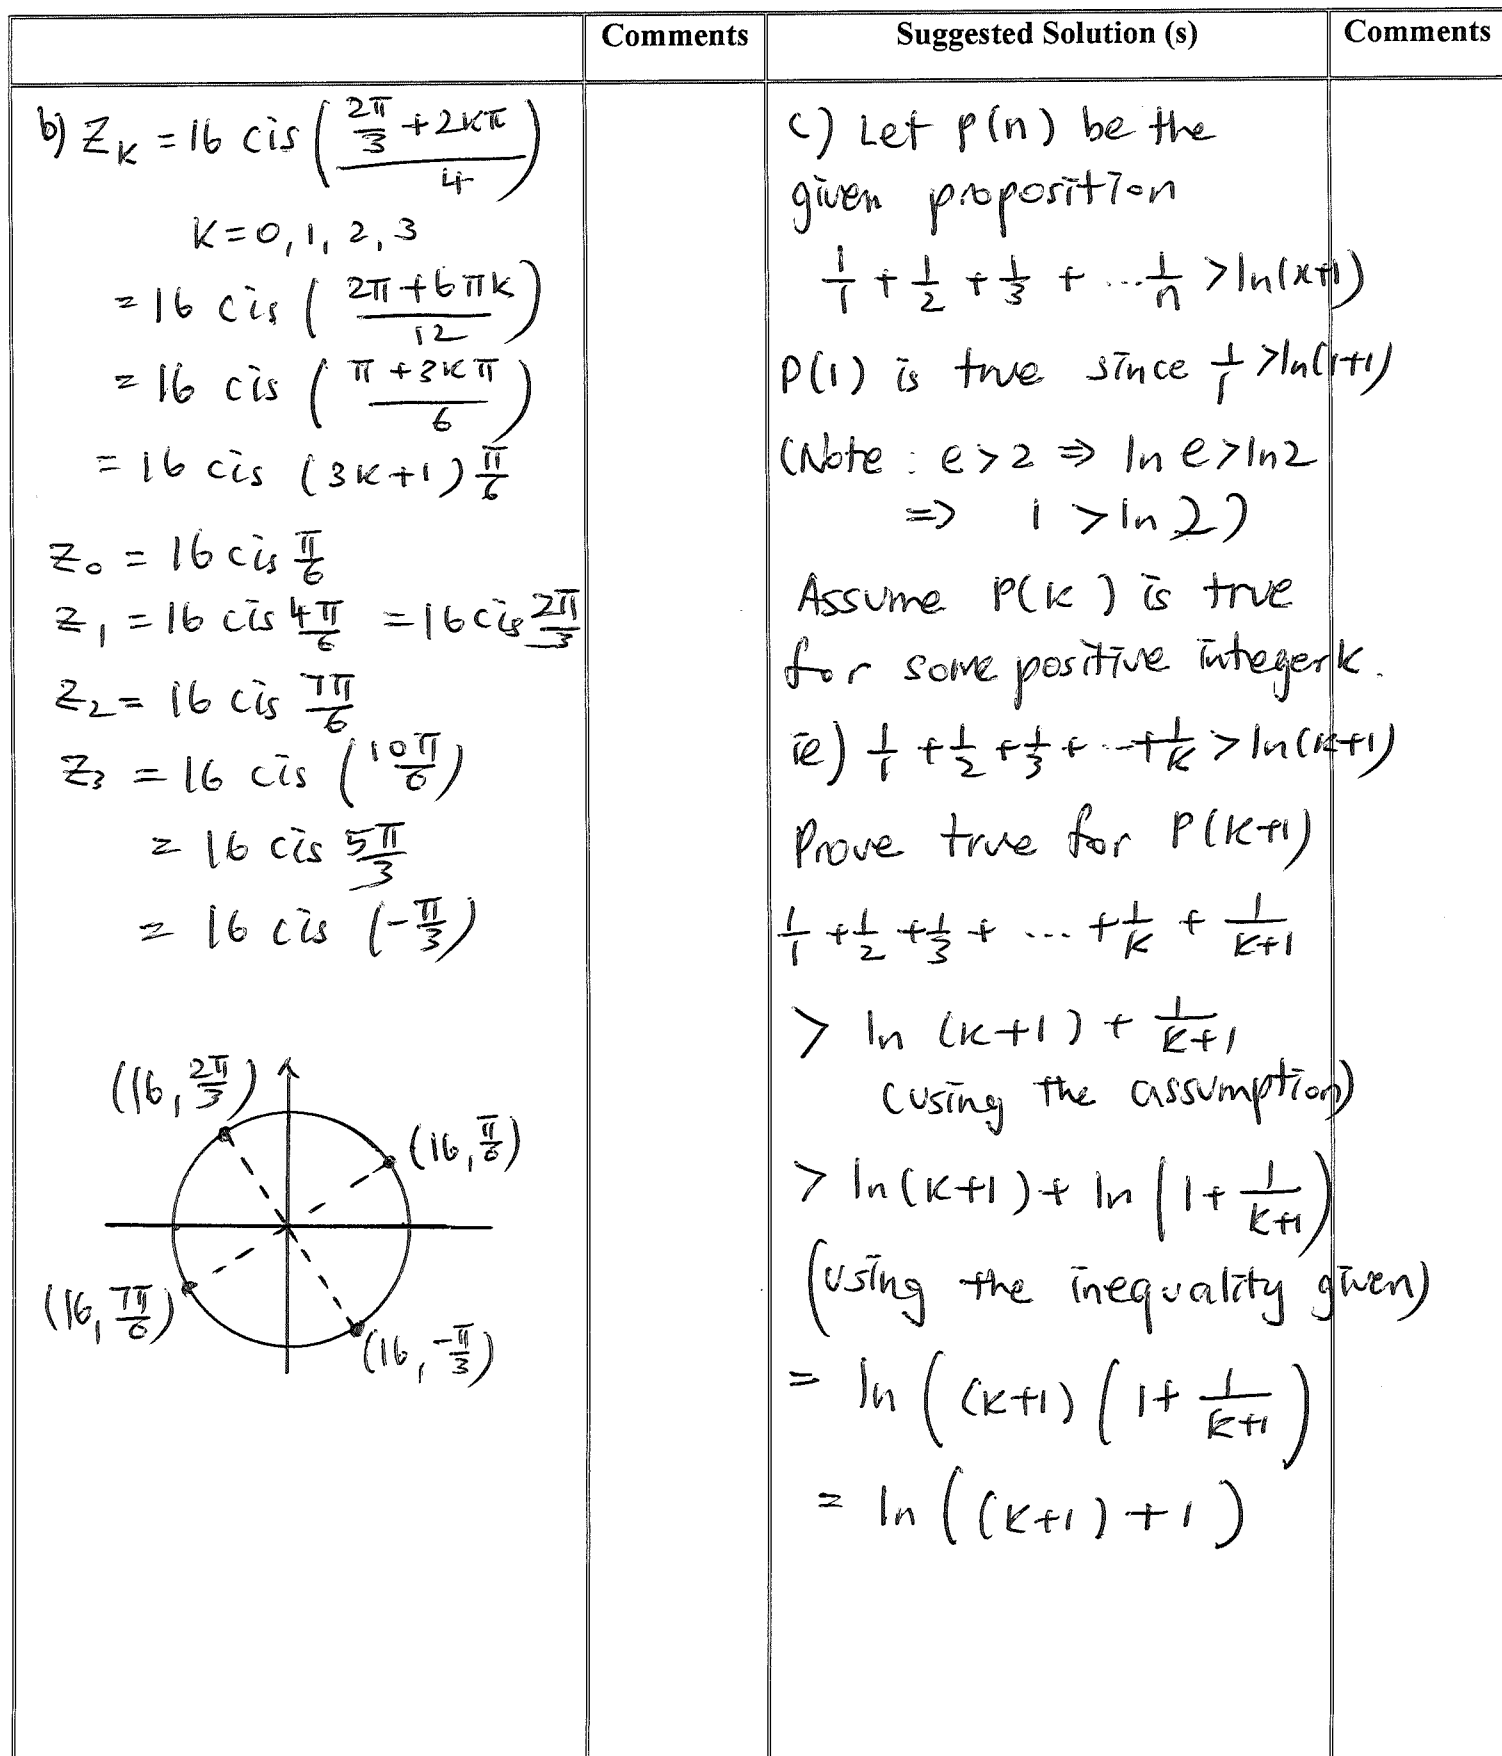 Comments
Suggested Solution (s)
Comments
b) Z_k = 16 cis ( (2π/3 + 2kπ) / 4 )
k = 0, 1, 2, 3
= 16 cis ( (2π + 6πk) / 12 )
= 16 cis ( (π + 3kπ) / 6 )
= 16 cis (3k+1) π/6
z₀ = 16 cis π/6
z₁ = 16 cis 4π/6 = 16 cis 2π/3
z₂ = 16 cis 7π/6
z₃ = 16 cis (10π/6)
= 16 cis 5π/3
= 16 cis (-π/3)
(16, 2π/3)
(16, π/6)
(16, 7π/6)
(16, -π/3)
c) Let p(n) be the
given proposition
1/1 + 1/2 + 1/3 + ... 1/n > ln(x+1)
P(1) is true since 1/1 > ln(1+1)
(Note : e > 2 ⇒ ln e > ln 2
⇒ 1 > ln 2)
Assume P(k) is true
for some positive integer k.
ie) 1/1 + 1/2 + 1/3 + ... + 1/k > ln(k+1)
Prove true for P(k+1)
1/1 + 1/2 + 1/3 + ... + 1/k + 1/(k+1)
> ln (k+1) + 1/(k+1)
(using the assumption)
> ln(k+1) + ln (1 + 1/(k+1))
(using the inequality given)
= ln ( (k+1) ( 1 + 1/(k+1) )
= ln ( (k+1) + 1 )